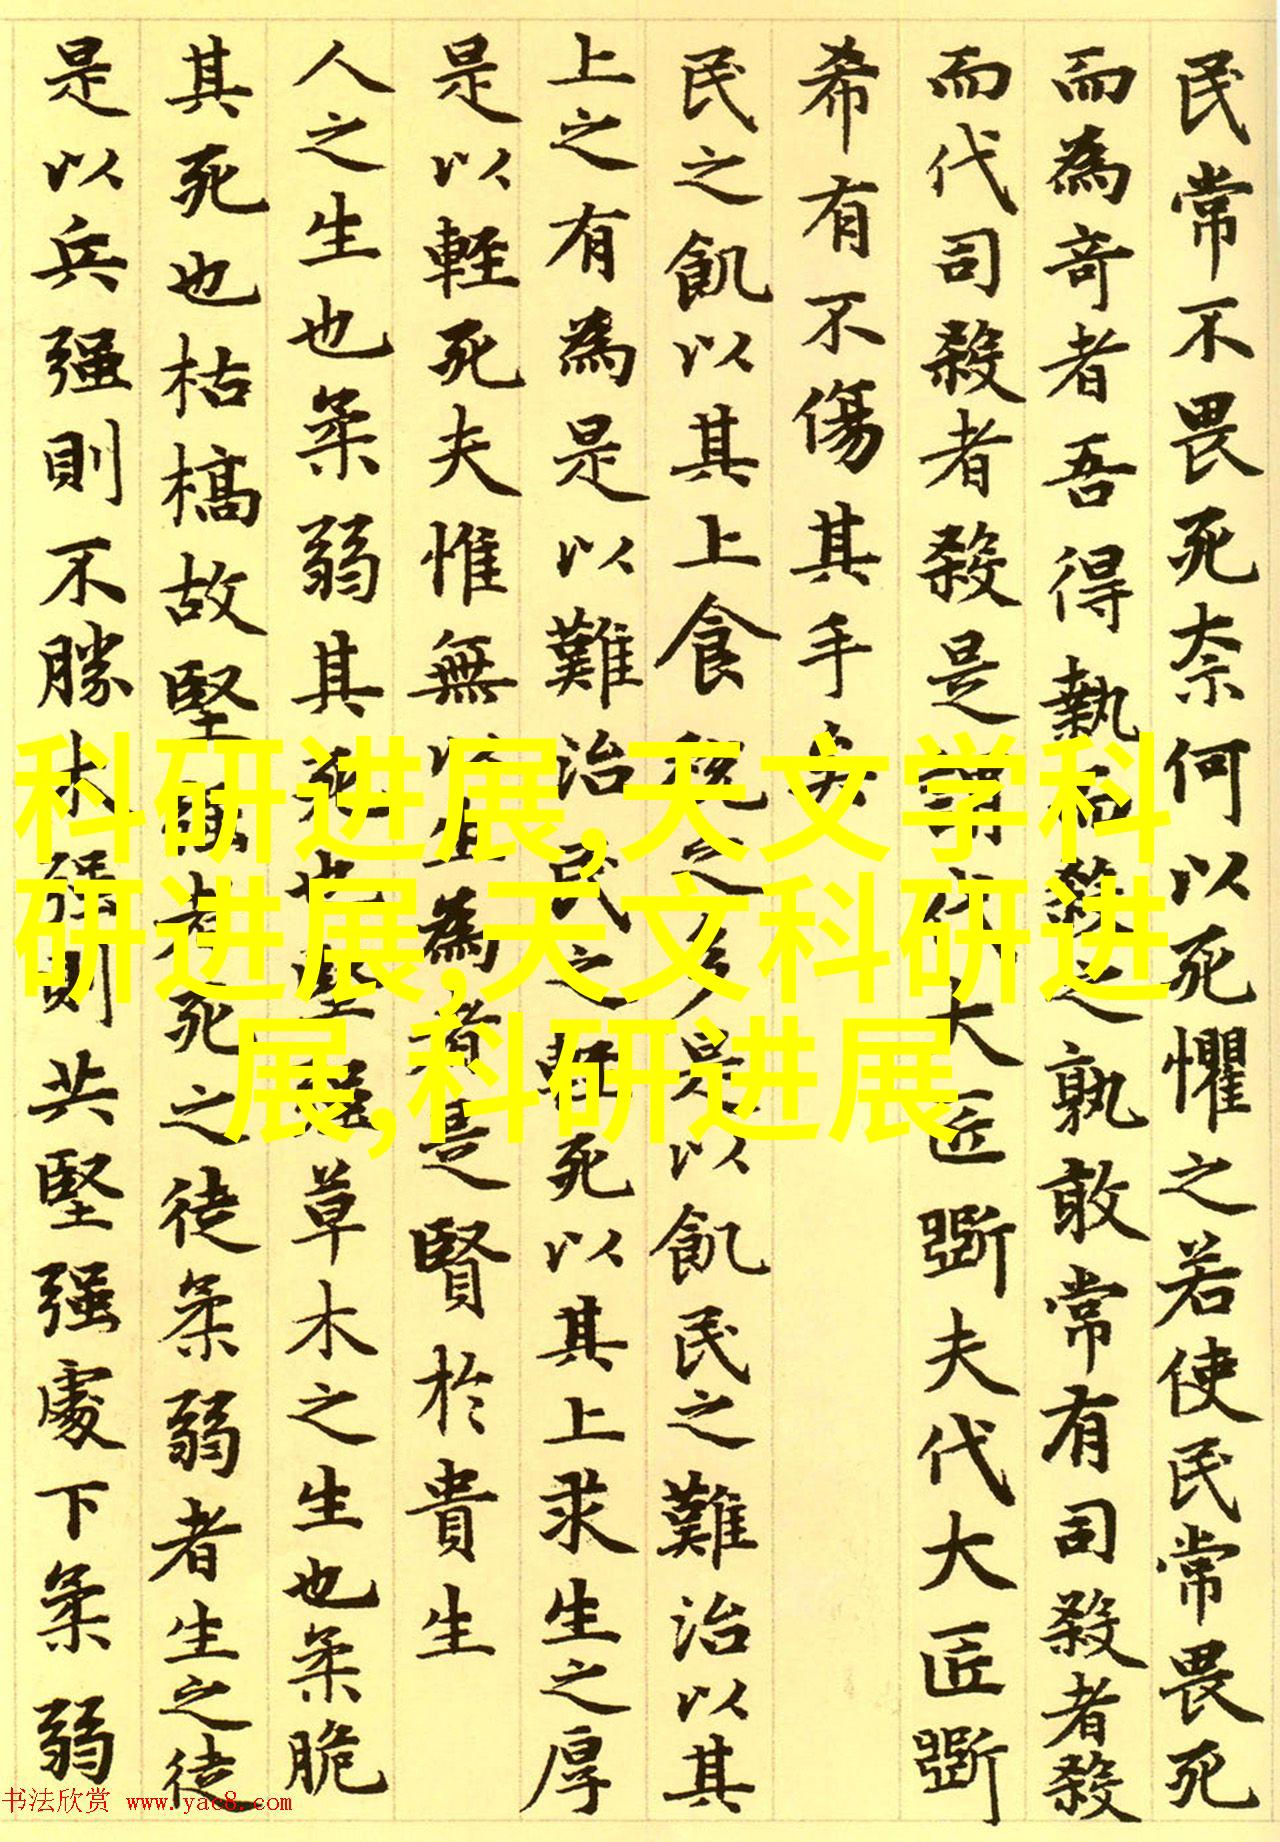 民常不畏死柰何以死懼之若使民常畏死
而為竒者吾得執而殺之孰敢常有司殺者殺
而代司殺者殺是謂代大匠斲夫代大匠斲
希有不傷其手矣
民之飢以其上食稅之多是以飢民之難治以其
上之有為是以難治民之輕死以其上求生之厚
是以輕死夫惟無以生為者是賢於貴生
人之生也柔弱其死也堅强草木之生也柔脆
其死也枯槁故堅强者死之徒柔弱者生之徒
是以兵强則不勝木强則共堅强處下柔弱
科研进展,天文学科
研进展,天文科研进
展,科研进展
书法欣赏 www.yac8.com